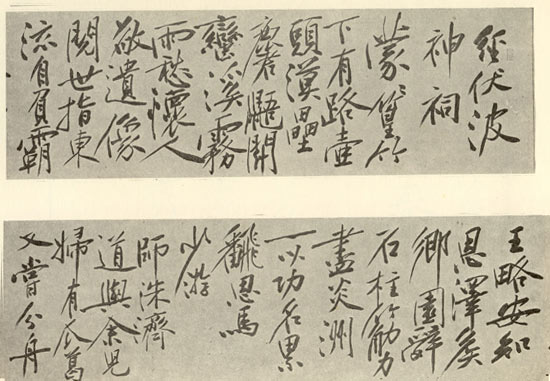 經伏波
神祠
蒙篁竹
下有路壺
頭漢壘
麏鼯鬥
蠻溪霧
雨愁懷人
敬遺像
閱世指東
流自負霸
王略安知
恩澤侯
鄉園辭
石柱筋力
盡炎洲
一以功名累
翻思馬
少游
師洙濟
道與余兒
婦有瓜葛
又嘗分舟